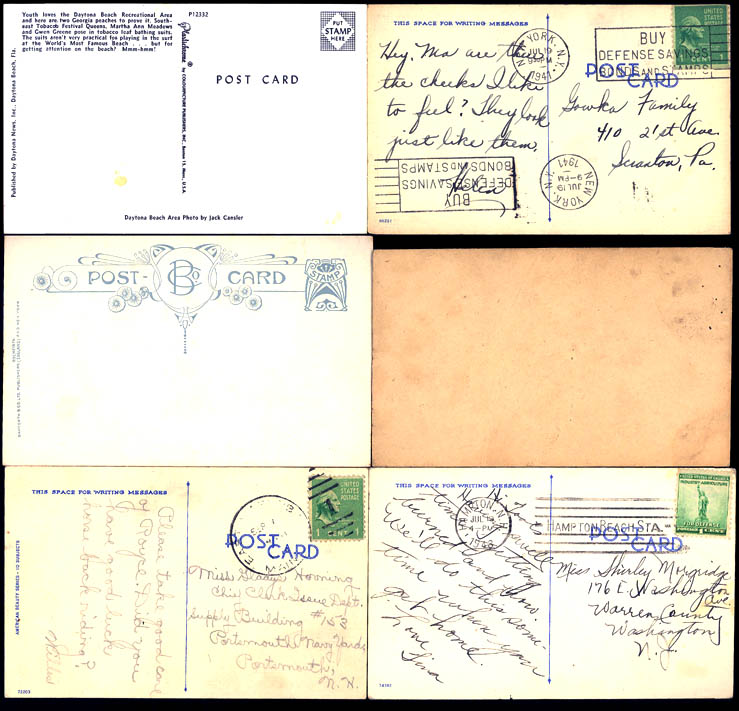 Youth loves the Daytona Beach Recreational Area
and here are two Georgia peaches to prove it. South-
east Tobacco Festival Queens, Martha Ann Meadows
and Gwen Greene pose in tobacco leaf bathing suits.
The suits aren't very practical for playing in the surf
at the World's Most Famous Beach . . . but for
getting attention on the beach? Mmm-hmm!
P12332
PUT
STAMP
HERE
POST CARD
Published by Daytona News, Inc., Daytona Beach, Fla.
Plastichrome ® by COLOURPICTURE PUBLISHERS, INC. Boston 15, Mass., U.S.A.
Daytona Beach Area Photo by Jack Cansler
THIS SPACE FOR WRITING MESSAGES
Hey, Ma are these
the cheeks I like
to feel? They look
just like them.
Helen
NEW YORK, N.Y.
JUL 19
9 30 PM
1941
BUY
DEFENSE SAVINGS
BONDS AND STAMPS
POST
CARD
Gowka Family
410 21st Ave
Scranton, Pa.
BUY
DEFENSE SAVINGS
BONDS AND STAMPS
NEW YORK, N.Y.
JUL 19
9 PM
1941
POST- B Co CARD
STAMP
THIS SPACE FOR WRITING MESSAGES
Please take good care
of Royce. Did you
have good luck
horse back riding?
AMERICAN BEAUTY SERIES—10 SUBJECTS
UNITED
STATES
POSTAGE
1
POST
CARD
Miss Gladys Horning
Chief Clerk Issue Dept.
Supply Building #153
Portsmouth Navy Yard
Portsmouth
N. H.
THIS SPACE FOR WRITING MESSAGES
We'll do this some
time when your
get home.
Love
Tina
HAMPTON, N.H.
JUL
4 - PM
HAMPTON BEACH STA.
UNITED STATES OF AMERICA
INDUSTRY AGRICULTURE
FOR DEFENSE
POST
CARD
Miss Shirley
176 E. Washington
Ave.
Warren County
Washington
N. J.